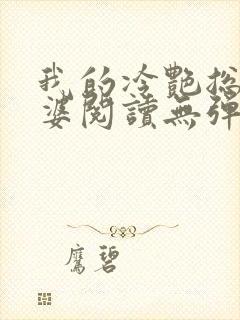 我的冷艷总
婆閱讀無彈
鷹碧